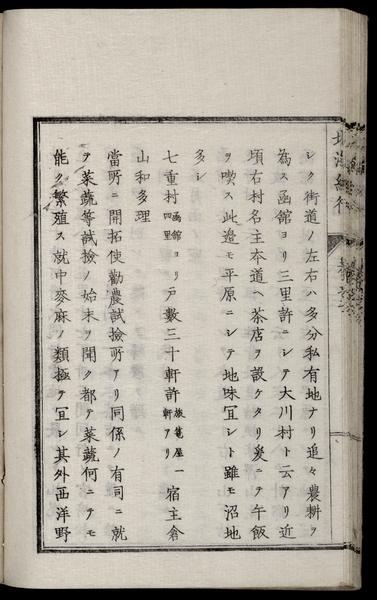 シク街道ノ左右ハ多分私有地ナリ追々農耕ヲ
為ス函館ヨリ三里許ニシテ大川村ト云アリ近
頃右村名主本道ヘ茶店ヲ設ケタリ爰ニテ午飯
ヲ喫ス此邉モ平原ニシテ地味冝シト雖モ沼地
多シ
七重村函館ヨリ四里戸數三十軒許旅籠屋一軒アリ宿主倉
山和多理
當所ニ開拓使勸農試撿所アリ同係ノ有司ニ就
テ菜蔬等試撿ノ始末ヲ聞ク都テ菜蔬何ニテモ
能ク繁殖ス就中麥麻ノ類極テ冝シ其外西洋野